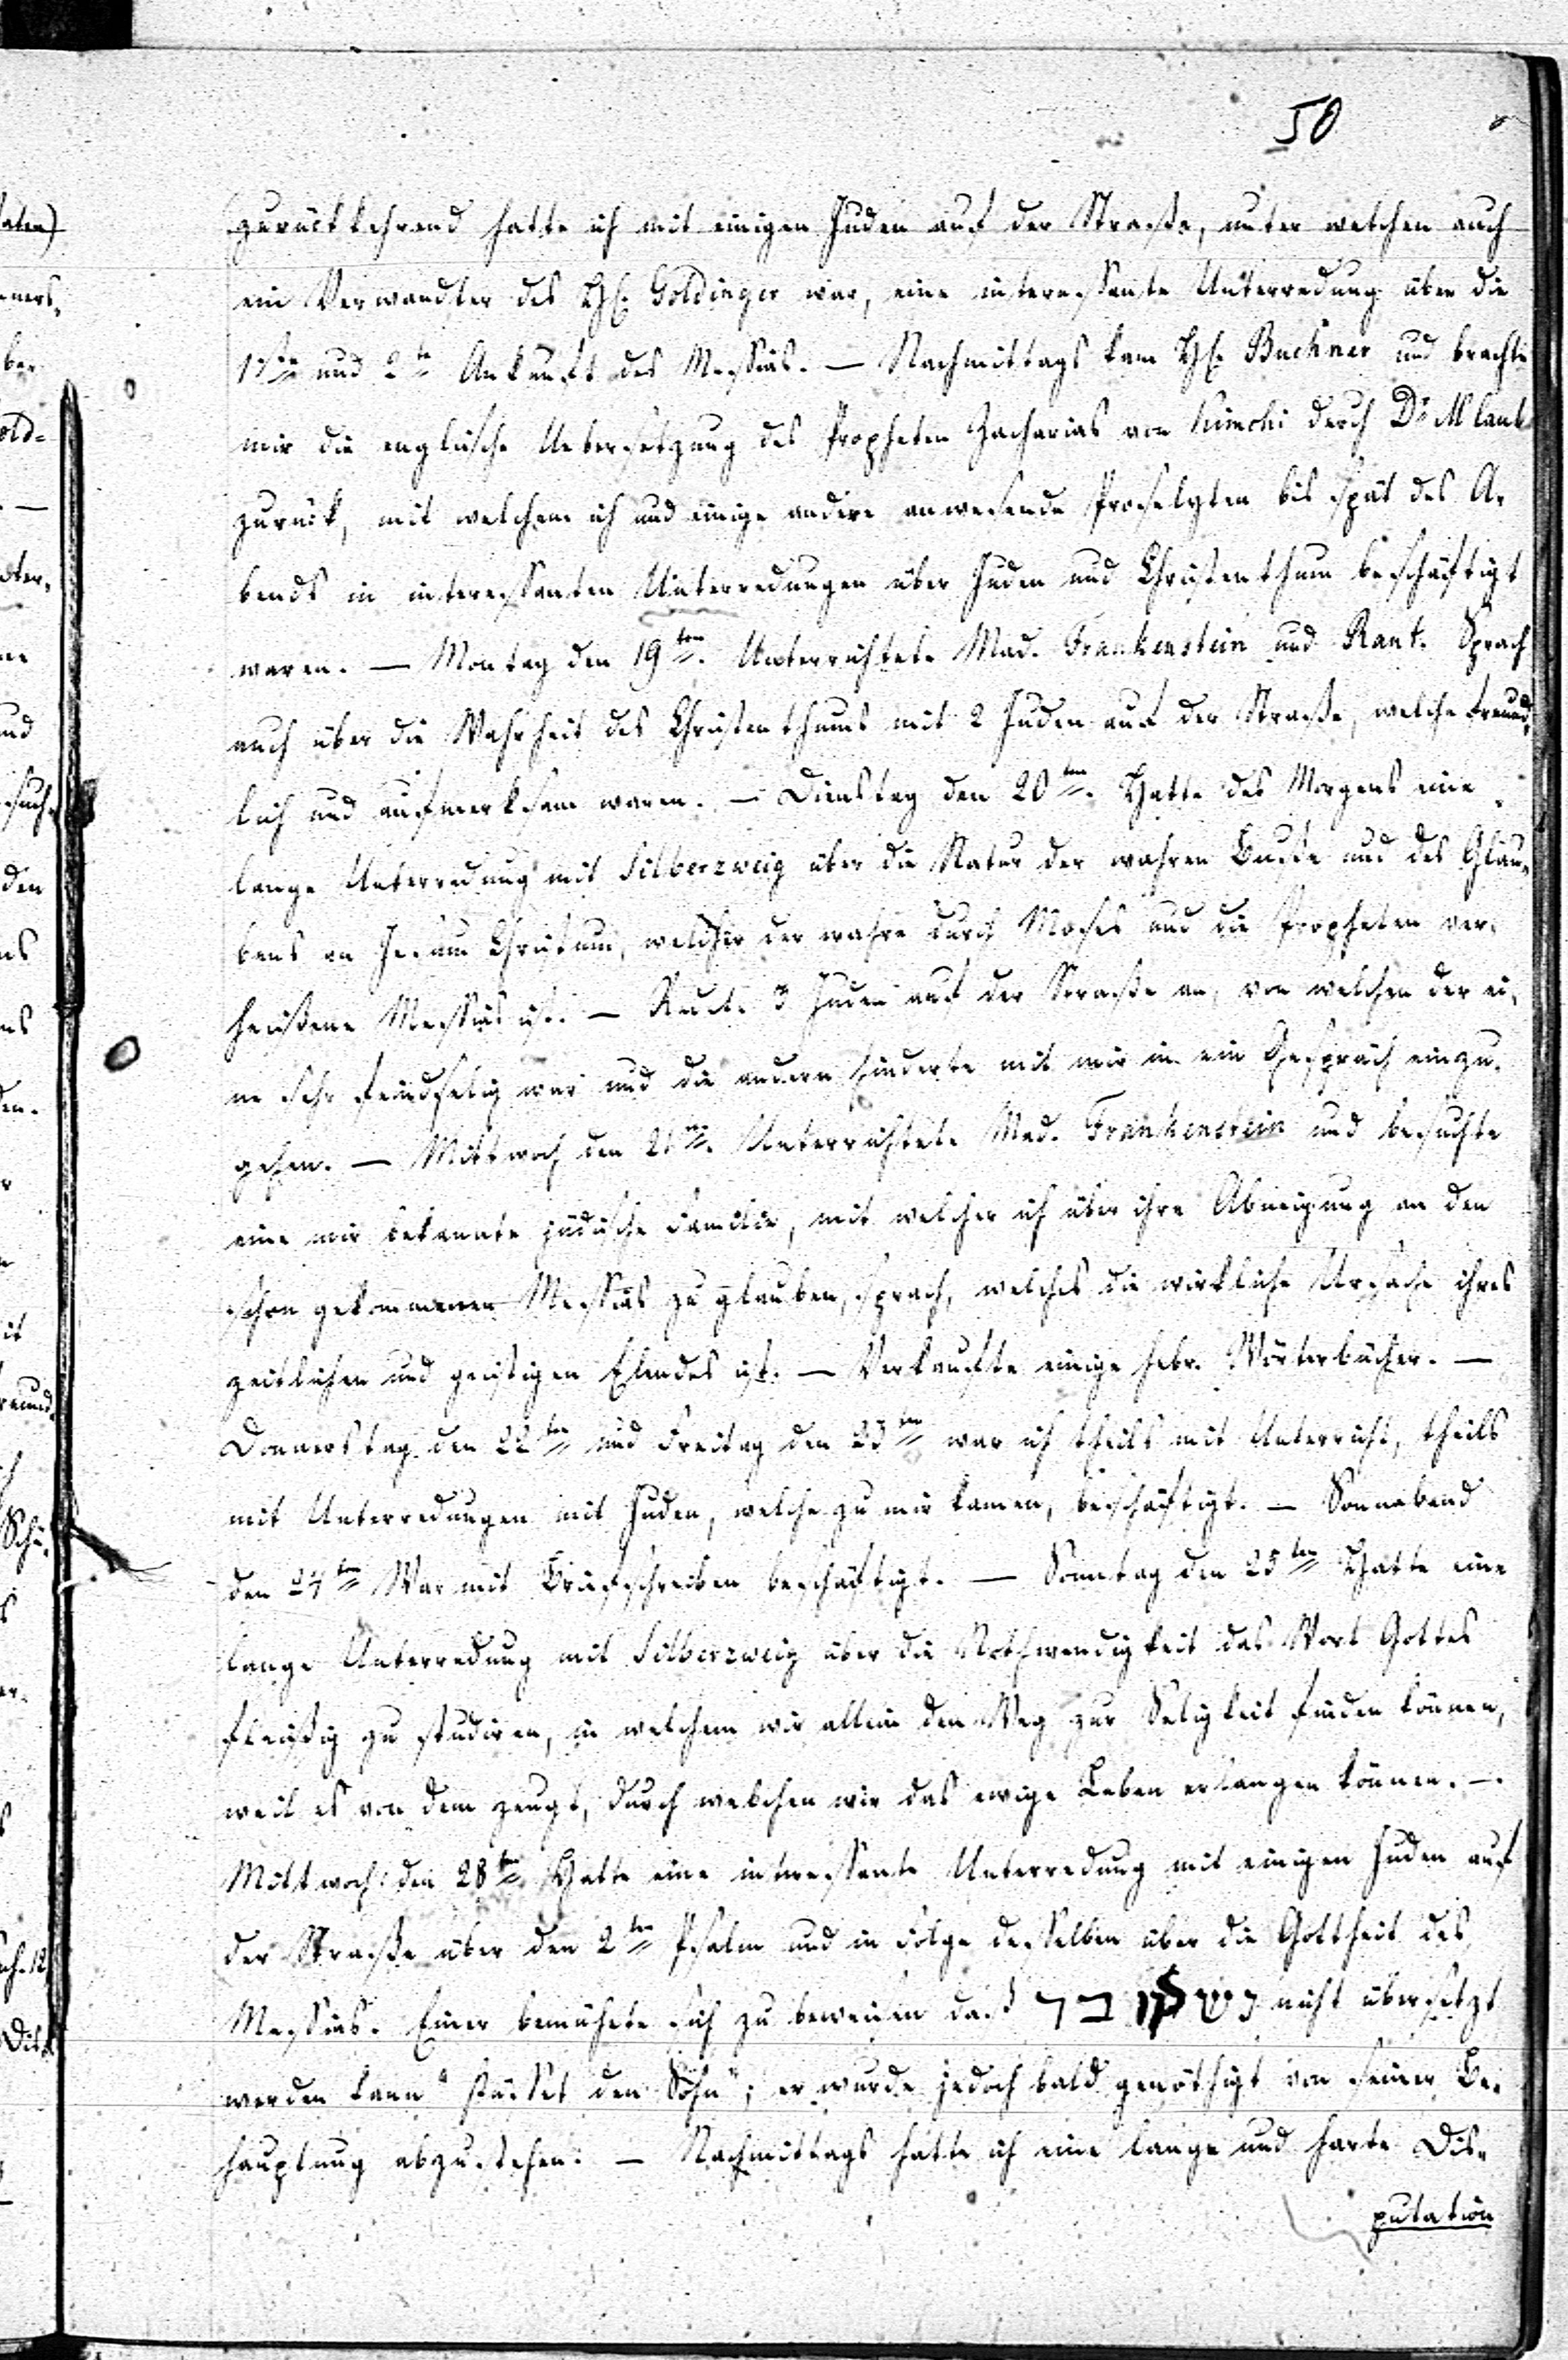 50
zurückkehrend hatte ich mit einigen Juden auf der Straße, unter welchen auch
ein Verwandter des H. Goldinger war, eine interessante Unterredung über die
1ste und 2te Ankunft des Messias. — Nachmittags kam H. Buchner und brachte
mir die englische Uebersetzung des Propheten Zacharias von Kimchi durch Dr M'Caul
zurück, mit welchem ich und einige andere anwesende Proselyten bis spät des A-
bends in interessanten Unterredungen über Juden und Christenthum beschäftigt
waren. — Montag den 19ten. Unterrichtete Mad. Frankenstein und Rant. Sprach
auch über die Wahrheit des Christenthums mit 2 Juden auf der Straße, welche freund-
lich und aufmerksam waren. — Dienstag den 20ten. Hatte des Morgens eine
lange Unterredung mit Silberzweig über die Natur der wahren Buße und des Glau-
bens an Jesum Christum, welcher der wahre durch Moses und die Propheten ver-
heißene Messias ist. — Redete 3 Juden auf der Straße an, von welchen der ei-
ne sehr feindselig war und die andern hinderte mit mir in ein Gespräch einzu-
gehen. — Mittwoch den 21ten. Unterrichtete Mad. Frankenstein und besuchte
eine mir bekannte jüdische Familie, mit welcher ich über ihre Abneigung an den
schon gekommenen Messias zu glauben, sprach, welches die wirkliche Ursache ihres
zeitlichen und geistigen Elendes ist. — Verkaufte einige hebr. Wörterbücher. —
Donnerstag den 22ten und Freitag den 23ten war ich theils mit Unterricht, theils
mit Unterredungen mit Juden, welche zu mir kamen, beschäftigt. — Sonnabend
den 24ten War mit Briefschreiben beschäftigt. — Sonntag den 25ten Hatte eine
lange Unterredung mit Silberzweig über die Nothwendigkeit das Wort Gottes
fleißig zu studiren, in welchem wir allein den Weg zur Seligkeit finden können,
weil es von dem zeugt, durch welchen wir das ewige Leben erlangen können. —
Mittwoch den 28ten Hatte eine interessante Unterredung mit einigen Juden auf
der Straße über den 2ten Psalm und in Folge desselben über die Gottheit des
Messias. Einer bemühete sich zu beweisen daß נשקו בר nicht übersetzt
werden kann "küsset den Sohn"; er wurde jedoch bald genöthigt von seiner Be-
hauptung abzustehen. — Nachmittags hatte ich eine lange und harte Dis-
putation